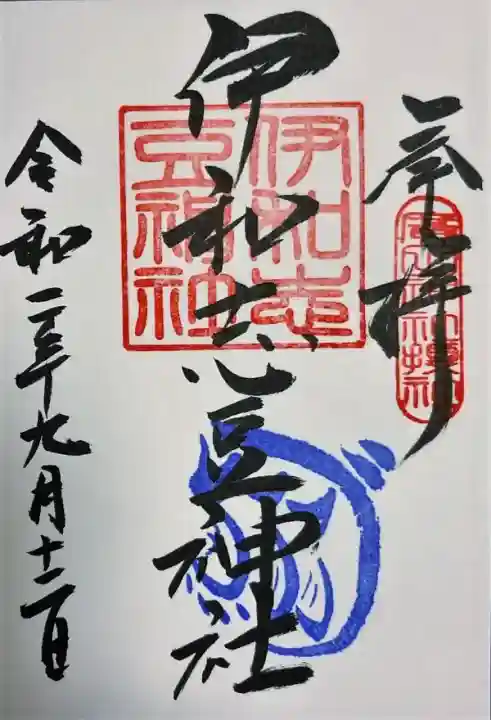 奉拝
伊和志豆神社
伊和志
豆神社
令和二年九月十二日